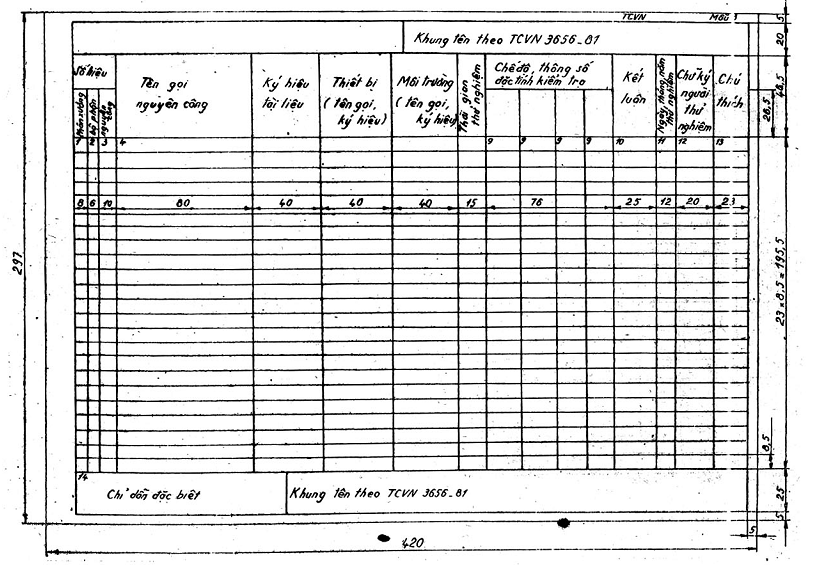 TCVN Mẫu 1
5
20
Khung tên theo TCVN 3656_81
Số hiệu
Phân xưởng
Bộ phận
nguyên công
Tên gọi
nguyên công
Ký hiệu
tài liệu
Thiết bị
(tên gọi,
ký hiệu)
Môi trường
(tên gọi,
ký hiệu)
Thời gian
thử nghiệm
Chế độ, thông số
đặc tính kiểm tra
Kết
luận
Ngày, tháng, năm
thử nghiệm
Chữ ký
người
thử
nghiệm
Chú
thích
48,5
28,5
1 2 3 4 9 9 9 9 10 11 12 13
8 6 10 80 40 40 40 15 76 25 12 20 23
297
23 x 8,5 = 195,5
8,5
14
Chỉ dẫn đặc biệt
Khung tên theo TCVN 3656_81
25
5
5
420